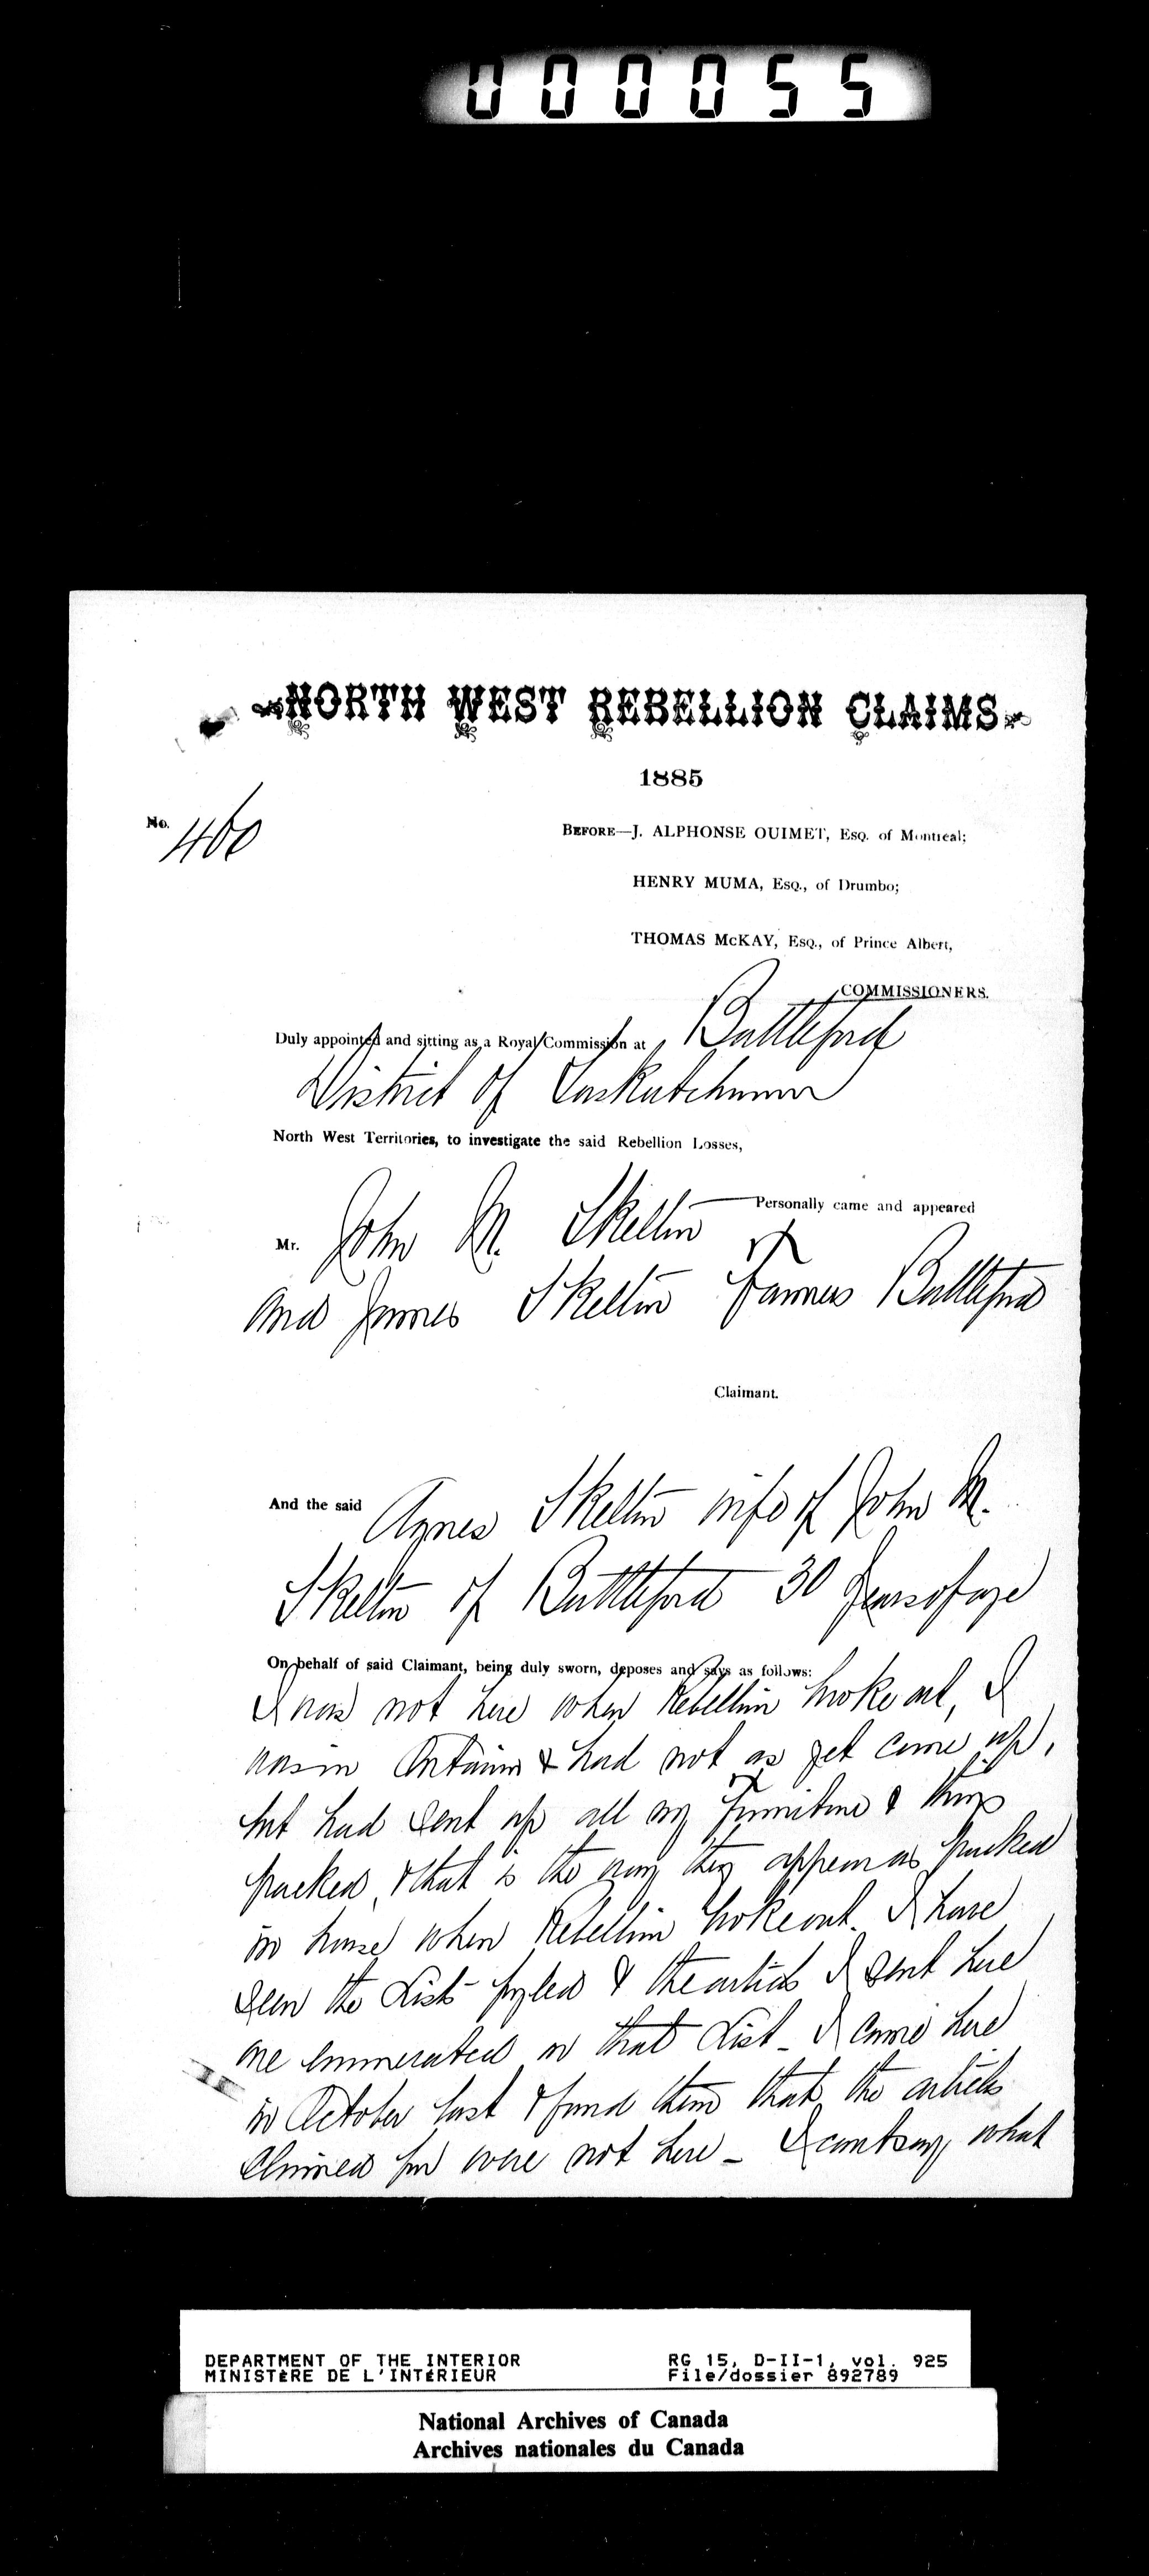 000055
NORTH WEST REBELLION CLAIMS
1885
No. 460
BEFORE—J. ALPHONSE OUIMET, Esq. of Montreal;
HENRY MUMA, Esq., of Drumbo;
THOMAS McKAY, Esq., of Prince Albert,
COMMISSIONERS.
Duly appointed and sitting as a Royal Commission at Battleford
District of Saskatchewan
North West Territories, to investigate the said Rebellion Losses,
Personally came and appeared
Mr. John M. Skelton
and James Skelton Farmers Battleford
Claimant.
And the said Agnes Skelton wife of John M.
Skelton of Battleford 30 years of age
On behalf of said Claimant, being duly sworn, deposes and says as follows:
I was not here when Rebellion broke out, I
was in Ontario & had not as yet come up,
but had sent up all my furniture & things
packed, & that is the way they appear as packed
in house when Rebellion broke out. I have
seen the List fyled & the articles I sent here
are enumerated in that List - I came here
in October last & found then that the articles
claimed for were not here - I cant say what
DEPARTMENT OF THE INTERIOR
MINISTÈRE DE L'INTÉRIEUR
RG 15, D-II-1, vol. 925
File/dossier 892789
National Archives of Canada
Archives nationales du Canada